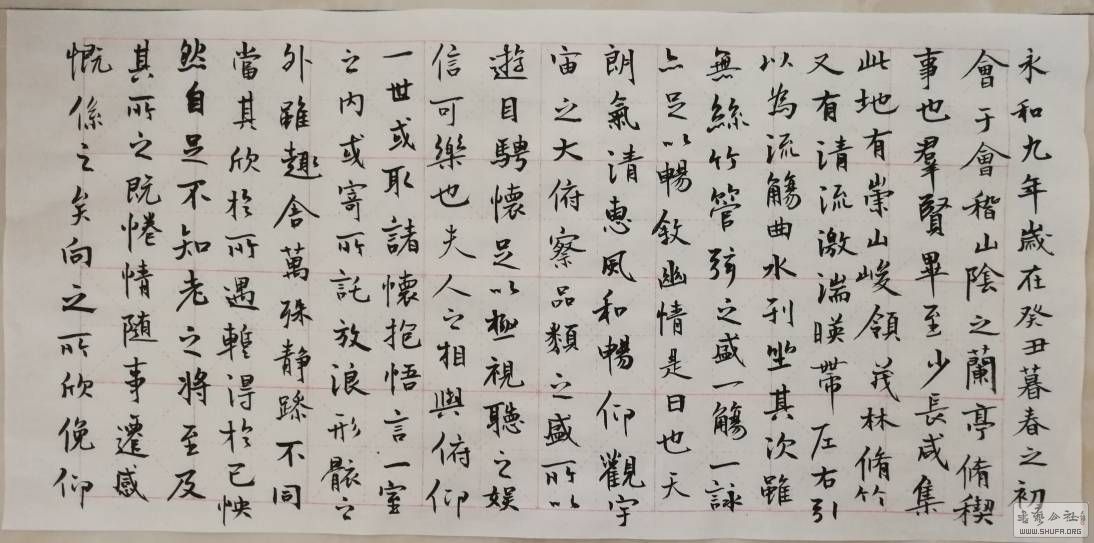 永和九年歲在癸丑暮春之初
會于會稽山陰之蘭亭脩稧
事也羣賢畢至少長咸集
此地有崇山峻領茂林脩竹
又有清流激湍暎帶左右引
以為流觴曲水列坐其次雖
無絲竹管弦之盛一觴一詠
亦足以暢敘幽情是日也天
朗氣清惠風和暢仰觀宇
宙之大俯察品類之盛所以
遊目騁懷足以極視聽之娛
信可樂也夫人之相與俯仰
一世或取諸懷抱悟言一室
之內或寄所託放浪形骸之
外雖趣舍萬殊靜躁不同
當其欣於所遇暫得於己怏
然自足不知老之將至及
其所之既惓情隨事遷感
慨係之矣向之所欣俛仰
書藝公社
WWW.SHUFA.ORG